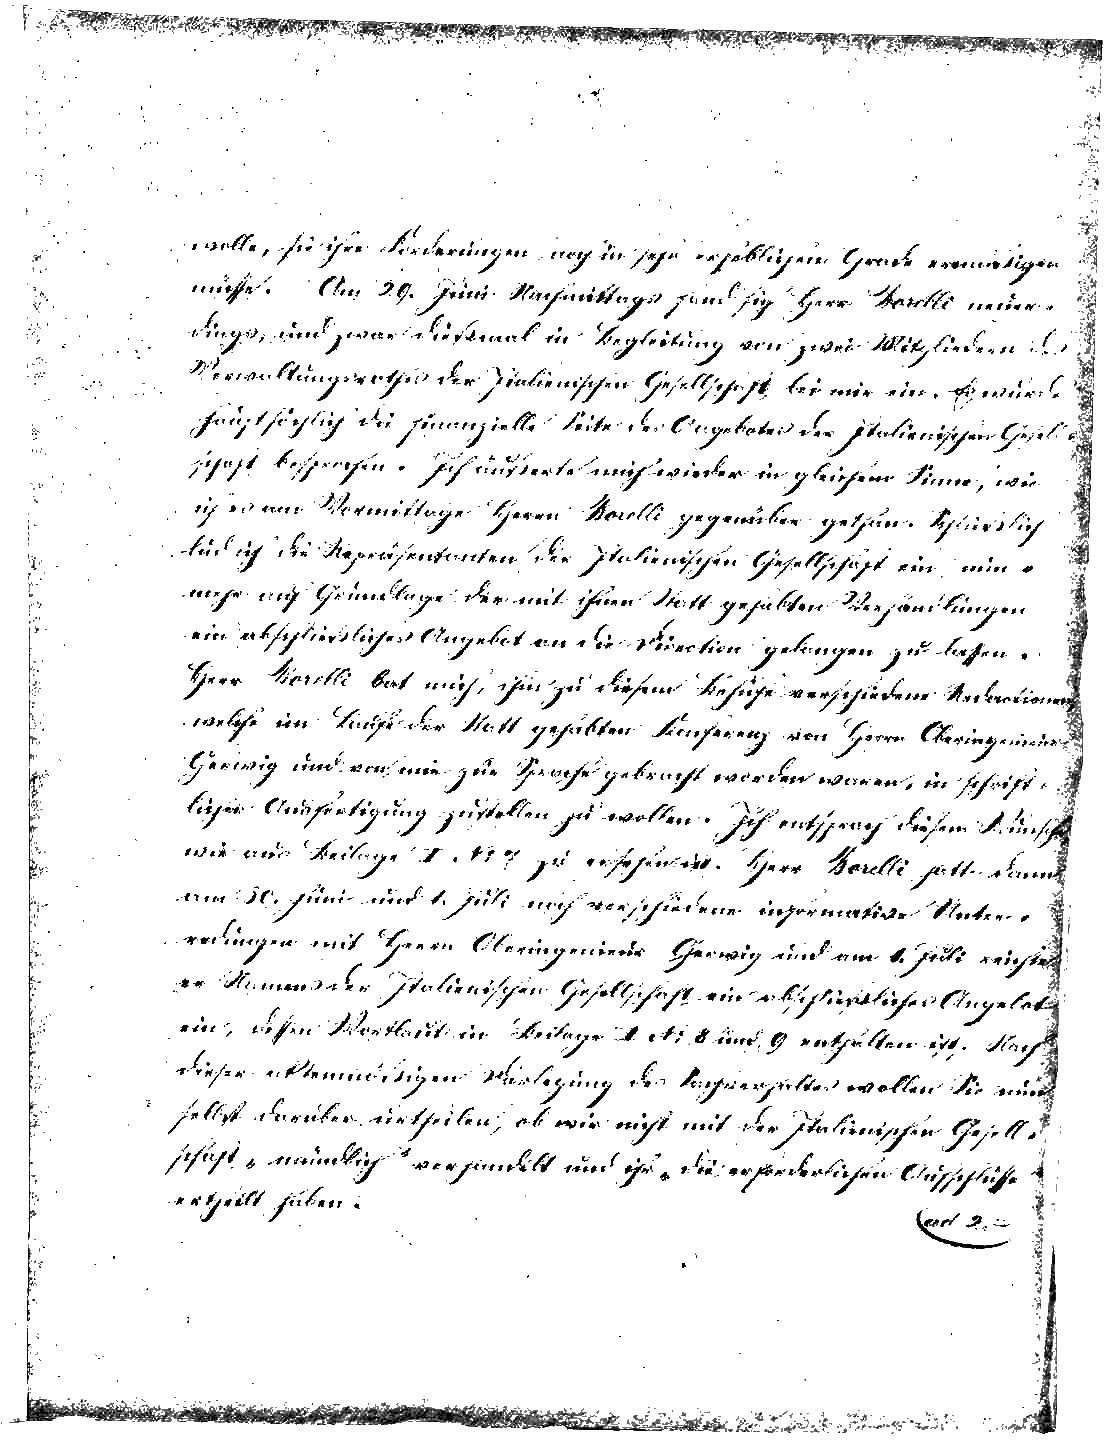 wolle, sie ihre Forderungen noch in sehr erheblichem Grade ermäßigen
müsse. Am 29. Juni Nachmittags fand sich Herr Borelli neuer-
dings, und zwar dießmal in Begleitung von zwei Mitgliedern des
Verwaltungsrathes der Italienischen Gesellschaft bei mir ein. Es wurde
hauptsächlich die finanzielle Seite des Angebotes der Italienischen Gesell-
schaft besprochen. Ich äußerte mich wieder in gleichem Sinne, wie
ich es am Vormittage Herrn Borelli gegenüber gethan. Schließlich
lud ich die Repräsentanten der Italienischen Gesellschaft ein, nun-
mehr auf Grundlage der mit ihnen Statt gehabten Verhandlungen
ein abschließliches Angebot an die Direction gelangen zu lassen.
Herr Borelli bat mich, ihm zu diesem Behufe verschiedene Redactionen
welche im Laufe der Statt gehabten Konferenz von Herrn Oberingenieur
Gerwig und von mir zur Sprache gebracht worden waren, in schrift-
licher Ausfertigung zustellen zu wollen. Ich entsprach diesem Wunsche
wie aus Beilage I № 7 zu ersehen ist. Herr Borelli hatte dann
am 30. Juni und 1. Juli noch verschiedene informative Unter-
redungen mit Herrn Oberingenieur Gerwig und am 1. Juli reichte
er Namens der Italienischen Gesellschaft ein abschließliches Angebot
ein, dessen Wortlaut in Beilage I № 8 und 9 enthalten ist. Nach
dieser aktenmäßigen Darlegung des Sachverhaltes wollen Sie nun
selbst darüber urtheilen, ob wir nicht mit der Italienischen Gesell-
schaft „mündlich“ verhandelt und ihr „die erforderlichen Aufschlüsse“
ertheilt haben.
ad 2.